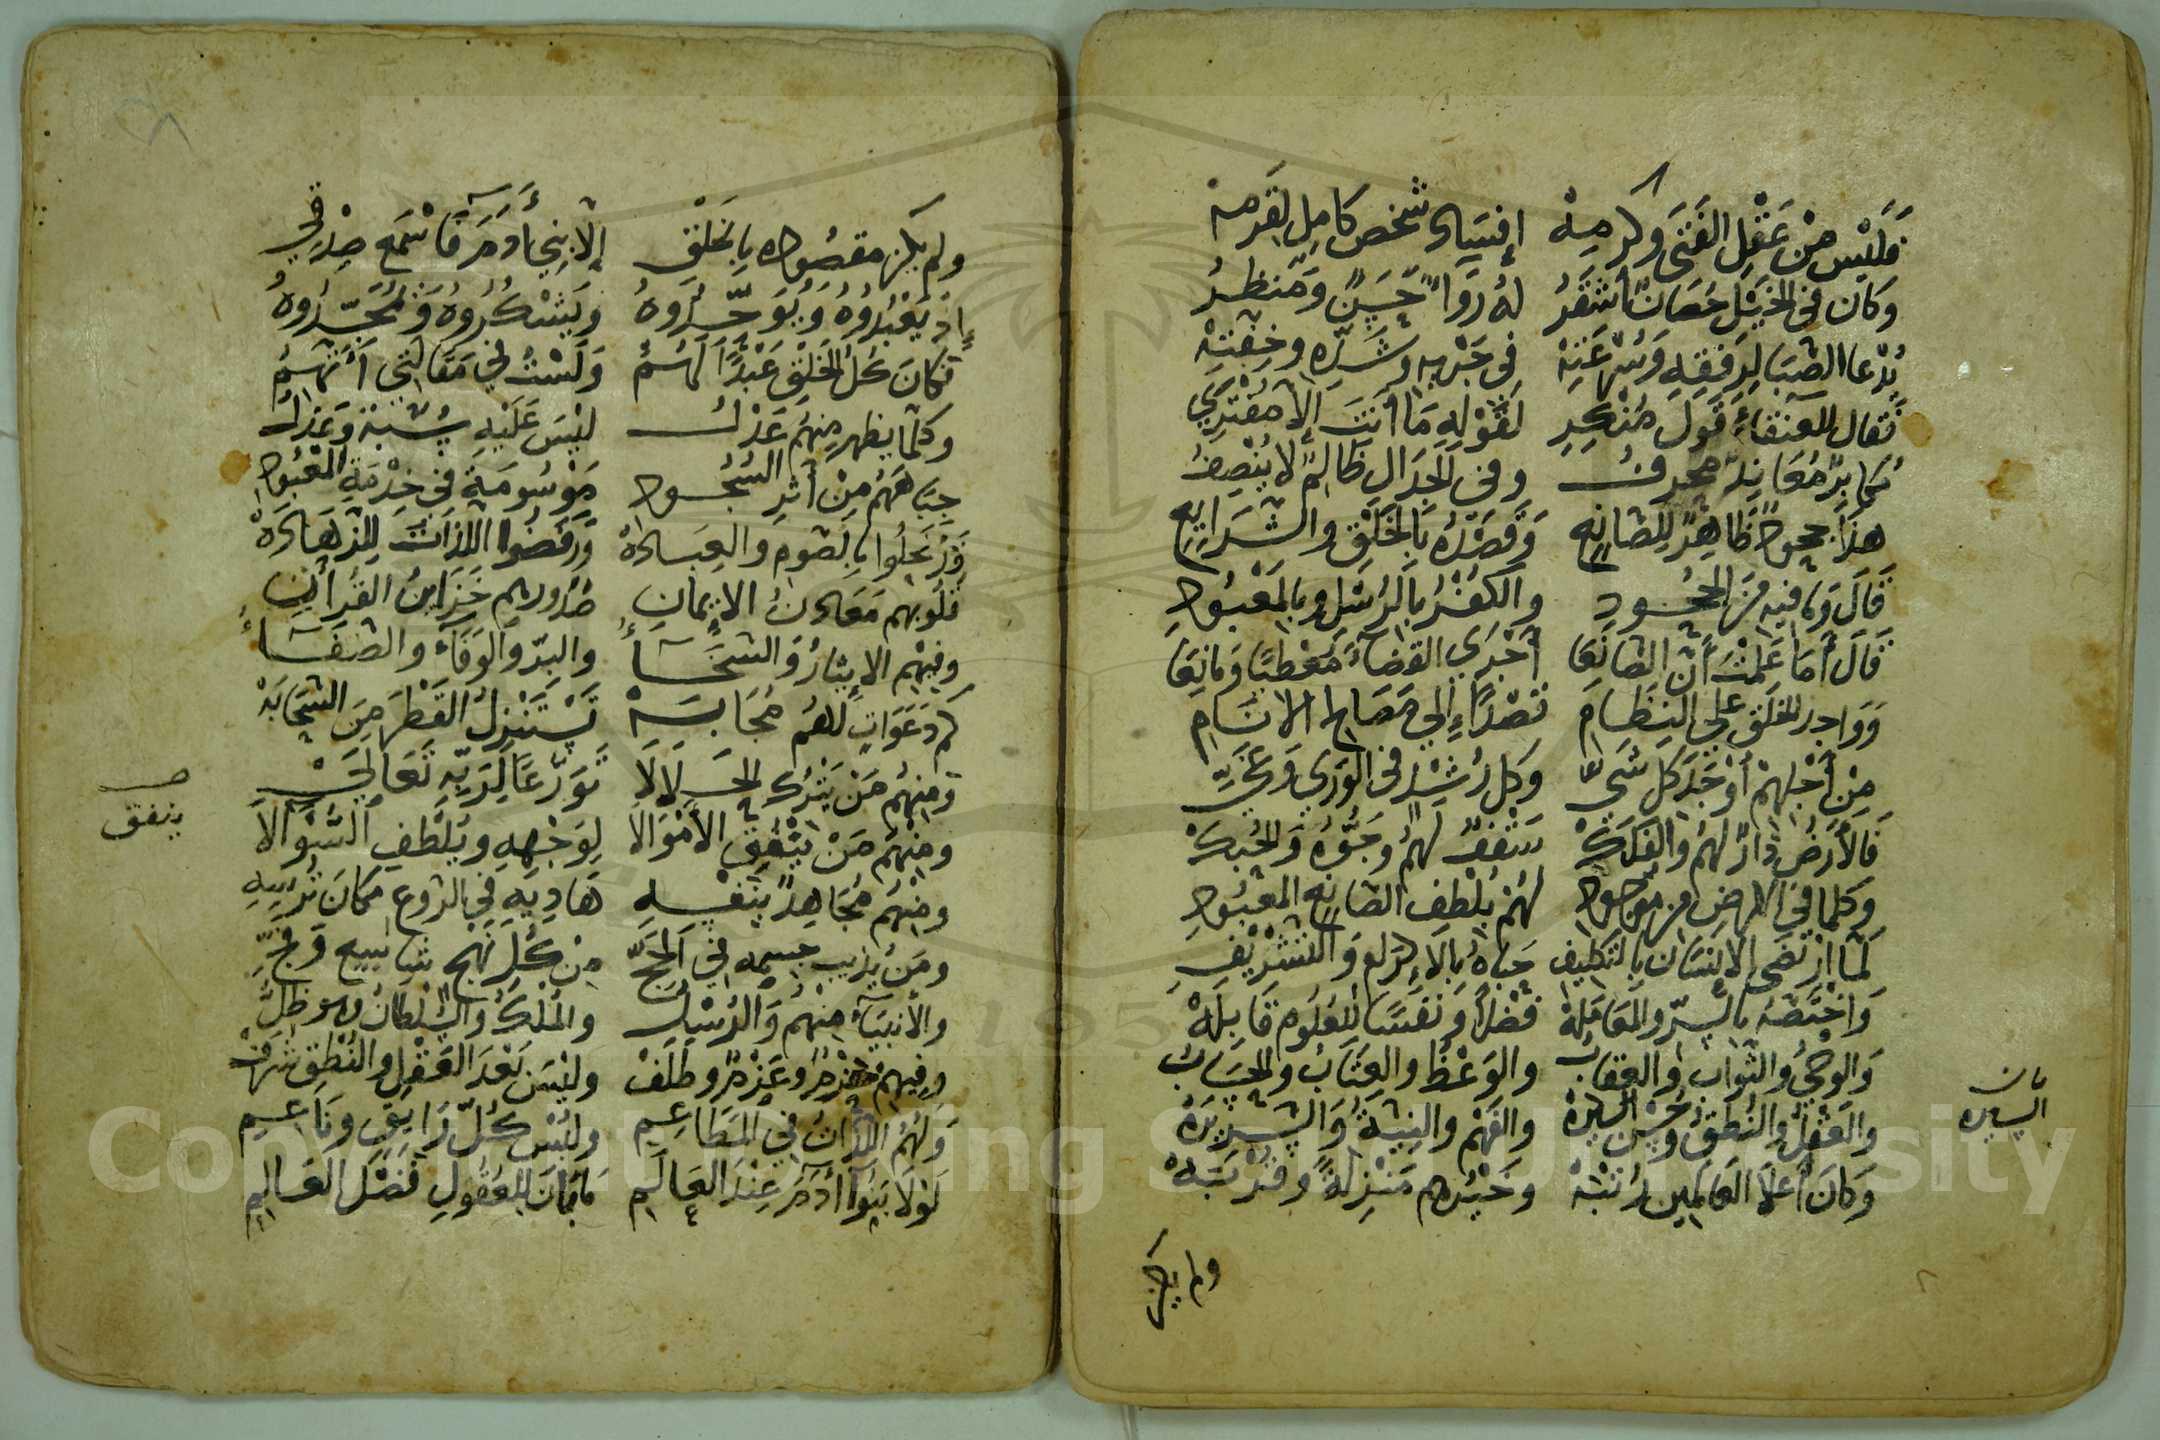 فَلَيْسَ مِنْ عَقْلِ الفَتَى وَكَرَمِهْ إفسَادُ شخصٍ كَامِلٍ لِقَرَمِهْ
وَكَان فى الخَيْلِ حِصَانٌ أشقَرُ لهُ رُوَاءٌ حَسَنٌ وَمَنظرُ
يُدْعَا الصَّبَا لِرِفقِهِ وَسُرْعَتِهْ فِى جَرْيِهِ وَشَدِّهِ وخِفَّتِهْ
فَقال للعنقاءِ قَولَ مُنْكِرِ لِقَوْلِهِ مَا أنتَ إلَّا مُفْتَرِي
مُكابِرٌ مُعَانِدٌ محرِفُ وفى الجِدَالِ ظَالِمٌ لَا يُنْصِفُ
هَذَا جحودٌ ظَاهِرٌ لِلصَّانِعِ وَقَصْدِهِ بِالخَلقِ والشَّرَايِعِ
قَالَ وَمَا فِيهِ مِنَ الجُحُودِ وَالكُفْرُ بِالرُّسْلِ وبِالمَعْبُودِ
قَالَ أَمَا عَلِمْتَ أنَّ الصَّانِعَا أَجْرَى القَضَاءَ مُعْطيًا وَمانِعَا
وَوَاجد الخَلق على النِّظَامِ قَصْدًا إلى مَصَالِح الانَامِ
مِنْ أَجْلِهِمْ أَوْجَدَ كلَّ شَيِّ وَكل رُشْدٍ فى الوَرَي وَغَيِّ
فَالأَرْضُ دَارٌ لهُم والفَلَكْ سَقْفٌ لَهُمْ وَجَوُّهُ وَالحُبُكْ
وَكلمَا فى الارضِ مِن مَوجُودِ لَهُمْ بِلُطْفِ الصَّانِعِ المَعْبُودِ
لَمَّا ارْتَضَى الإنسَان بِالتكلِيفِ حَبَاهُ بِالإكرَامِ وَالتَّشْرِيْفِ
وَاخْتَصَّهُ بِالسِّرِّ والمُعَامَلَهْ فَضْلًا وَنَفْسًا لِلعُلُومِ قَابِلَهْ
وَالوَحِيُ والثَّوَابُ والعِقَابُ والوَعْظُ والعِتَابُ والحِسَابُ
وَالعَقْلُ والنُّطقُ وحُسْن السِّيرَهْ والفَهْمُ والنِيَّةُ وَالسَّرِيرَهْ
وَكَانَ أعلَا العَالَمِين رُتْبَهْ وخَيْرهم مَنْزِلَةً وَقُرْبَهْ
بان
السيره
ولم يكن
ولم يكن مقصُودُه بِالخَلْقِ إلّا بَنِى أَدَمَ فَاسْمَع صِدْقِي
إذ يَعْبُدُوهُ وَيُوَحِّدُوهُ وَيَشْكُرُوهُ وَيُمَجِّدُوهُ
فكَانَ كُلُّ الخَلْقِ عَبْدًا لَهُمُ وَلَسْتُ فِى مَقَالَتِى أَتَّهِمُ
وَكلّمَا يظهر مِنهُم عَدْلُ ليْسَ عَلَيْهِ سُبَّة وَعَذْلُ
جِبَاهَهُم مِنْ أَثرِ السُّجُودِ مَوْسُومَةٌ فى خِدْمَةِ المَعْبُودِ
قَدْ نَحَلُوا بِالصَّومِ والعِبَادَهْ وَرَفَضُوا اللَّذاتِ لِلزَّهَادَهْ
قلُوبهم مَعَادنُ الإيمَانِ صُدُورهم خَزَاينُ القُرأنِ
وفِيْهِم الإيثارُ وَالسَّخَاءُ والبِرّ وَالوَفَاءُ والصَّفَاءُ
كم دَعَوَاتٍ لَهُم مُجَابَهْ تَسْتَنزِلُ القَطْرَ مِنَ السَّحَابَهْ
وَمِنهُم مَنْ يَتْرُك الحَلَالَا تَوَرُّعًا لِرَبِّهِ تَعَالَى
ومنهُم مَنْ يُنْفِق الأَمْوَالَا لِوَجْهِهِ ويُلطِفِ السُّؤالَا
ومِنهُم مُجَاهِدٌ بِنَفْسِهِ هَادِيهِ فى الرَّوعِ مَكَانَ تُرسِهِ
ومَن يُذِيب جسمه فى الحَجِّ مِن كُلِّ نَهْجٍ شاسِعٍ وَفَجِّ
والأنبِيَاءُ مِنهُم وَالرُّسْلُ والمُلْكُ والسُّلطانُ وهو ظِلُّ
وفِيهم حَزْمٌ وعَزْمٌ وظلَفْ وليْسَ بَعْدَ العَقْلِ والنُّطقِ شَرَفْ
وَلَهُم اللَّذاتُ فى المَطَاعِمِ وليْسَ كُلُّ رَايِقٍ وَنَاعِمِ
لَوْلَا بَنُوا أدَمَ عِنْدَ العَالَمِ مَا بَانَ للعُقُولِ فَضْلُ العَالِمِ
صـ
ينفق